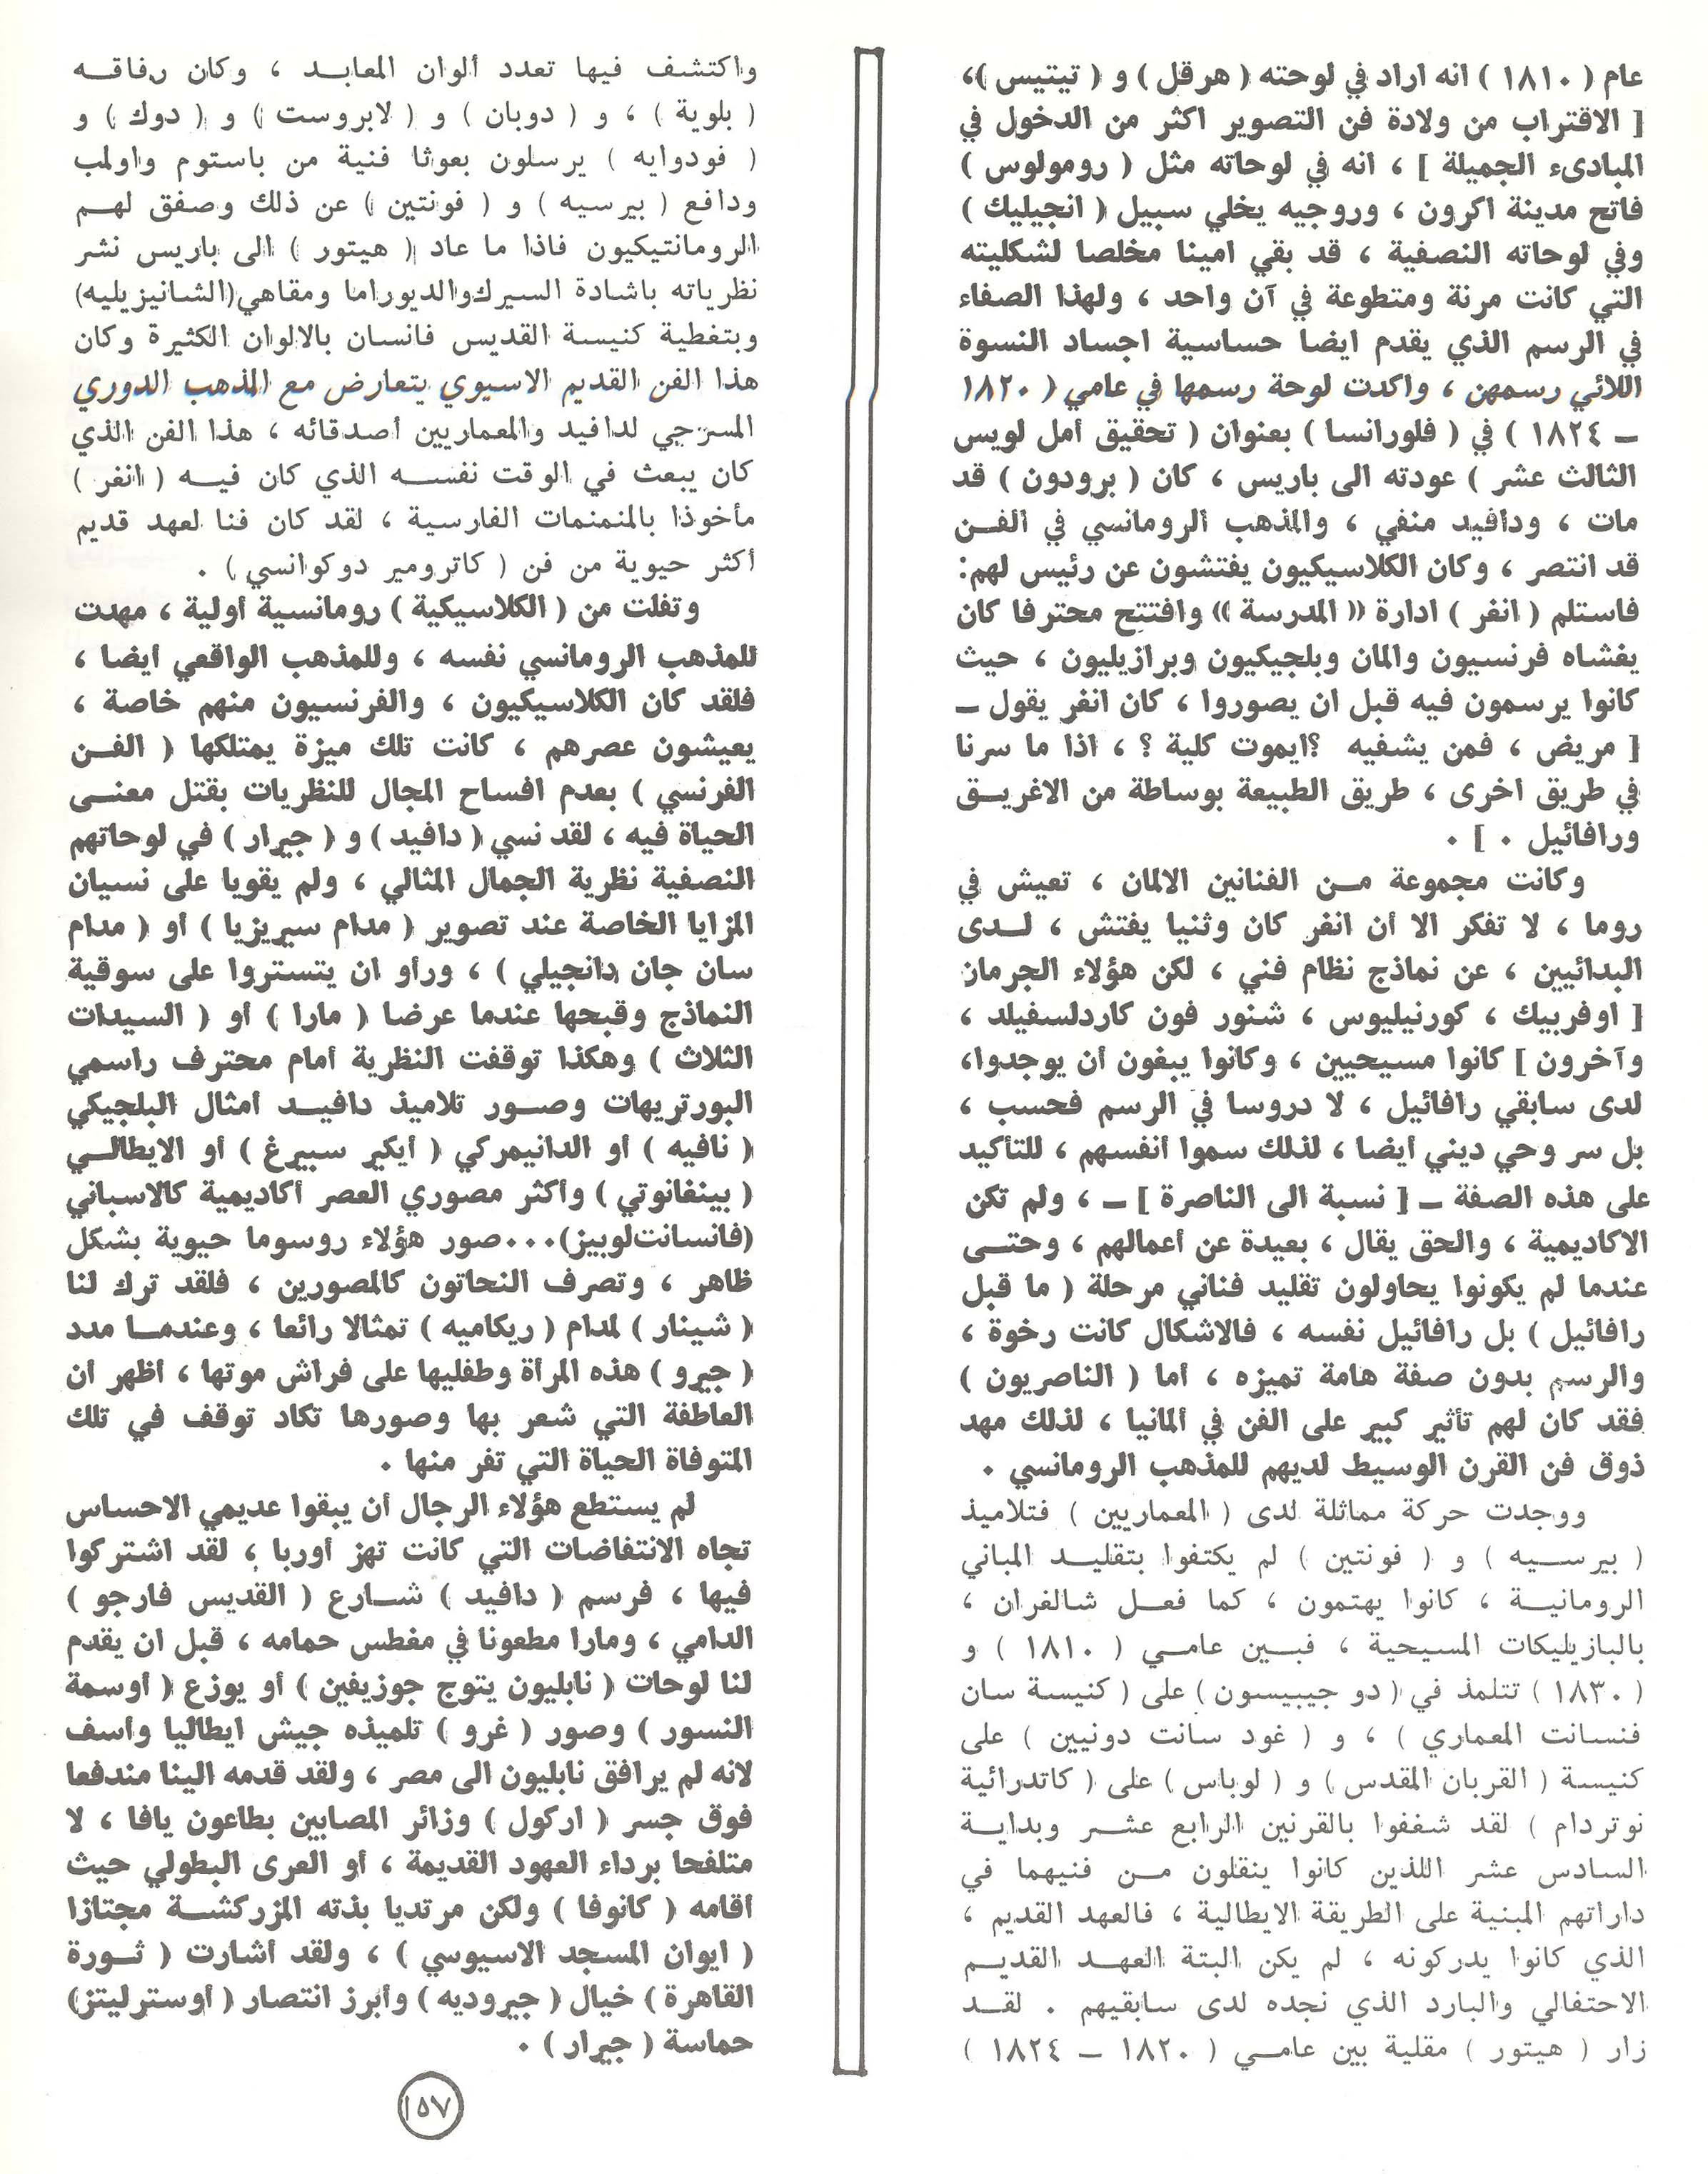 عام ( ١٨١٠ ) انه اراد في لوحته ( هرقل ) و ( تيتيس )،
[ الاقتراب من ولادة فن التصوير اكثر من الدخول في
المبادىء الجميلة ] ، انه في لوحاته مثل ( رومولوس )
فاتح مدينة اكرون ، وروجيه يخلي سبيل ( انجيليك )
وفي لوحاته النصفية ، قد بقي امينا مخلصا لشكليته
التي كانت مرنة ومتطوعة في آن واحد ، ولهذا الصفاء
في الرسم الذي يقدم ايضا حساسية اجساد النسوة
اللائي رسمهن ، واكدت لوحة رسمها في عامي ( ١٨٢٠
ــ ١٨٢٤ ) في ( فلورانسا ) بعنوان ( تحقيق أمل لويس
الثالث عشر ) عودته الى باريس ، كان ( برودون ) قد
مات ، ودافيد منفي ، والمذهب الرومانسي في الفـن
قد انتصر ، وكان الكلاسيكيون يفتشون عن رئيس لهم:
فاستلم ( انغر ) ادارة « المدرسة » وافتتح محترفا كان
يغشاه فرنسيون والمان وبلجيكيون وبرازيليون ، حيث
كانوا يرسمون فيه قبل ان يصوروا ، كان انغر يقول ــ
[ مريض ، فمن يشفيه ؟ايموت كلية ؟ ، اذا ما سرنا
في طريق اخرى ، طريق الطبيعة بوساطة من الاغريـق
ورافائيل . ] .
وكانت مجموعة مـن الفنانين الالمان ، تعيش في
روما ، لا تفكر الا أن انغر كان وثنيا يفتش ، لـدى
البدائيين ، عن نماذج نظام فني ، لكن هؤلاء الجرمان
[ اوفربيك ، كورنيليوس ، شنور فون كاردلسفيلد ،
وآخرون ] كانوا مسيحيين ، وكانوا يبغون أن يوجدوا،
لدى سابقي رافائيل ، لا دروسا في الرسم فحسب ،
بل سر وحي ديني أيضا ، لذلك سموا أنفسهم ، للتأكيد
على هذه الصفة ــ [ نسبة الى الناصرة ] ــ ، ولم تكن
الاكاديمية ، والحق يقال ، بعيدة عن أعمالهم ، وحتـى
عندما لم يكونوا يحاولون تقليد فناني مرحلة ( ما قبل
رافائيل ) بل رافائيل نفسه ، فالاشكال كانت رخوة ،
والرسم بدون صفة هامة تميزه ، أما ( الناصريون )
فقد كان لهم تأثير كبير على الفن في ألمانيا ، لذلك مهد
ذوق فن القرن الوسيط لديهم للمذهب الرومانسي .
ووجدت حركة مماثلة لدى ( المعماريين ) فتلاميذ
( بيرسـيه ) و ( فونتين ) لم يكتفوا بتقليـد المباني
الرومانيـة ، كانوا يهتمون ، كما فعـل شالغران ،
بالبازيليكات المسيحية ، فبـين عامـي ( ١٨١٠ ) و
( ١٨٣٠ ) تتلمذ في ( دو جيبيسون ) على ( كنيسة سان
فنسانت المعماري ) ، و ( غود سانت دونيين ) على
كنيسة ( القربان المقدس ) و ( لوباس ) على ( كاتدرائية
نوتردام ) لقد شغفوا بالقرنين الرابع عشـر وبدايـة
السادس عشر اللذين كانوا ينقلون مـن فنيهما في
داراتهم المبنية على الطريقة الايطالية ، فالعهد القديم ،
الذي كانوا يدركونه ، لم يكن البتة العهـد القديـم
الاحتفالي والبارد الذي نجده لدى سابقيهم . لقـد
زار ( هيتور ) مقلية بين عامـي ( ١٨٢٠ ــ ١٨٢٤ )
واكتشف فيها تعدد ألوان المعابـد ، وكان رفاقـه
( بلوية ) ، و ( دوبان ) و ( لابروست ) و ( دوك ) و
( فودوايه ) يرسلون بعوثا فنية من باستوم واولمب
ودافع ( بيرسيه ) و ( فونتين ) عن ذلك وصفق لهـم
الرومانتيكيون فاذا ما عاد ( هيتور ) الى باريس نشر
نظرياته باشادة السيرك والديوراما ومقاهي (الشانيزيليه)
وبتغطية كنيسة القديس فانسان بالالوان الكثيرة وكان
هذا الفن القديم الاسيوي يتعارض مع المذهب الدوري
المسرحي لدافيد والمعماريين أصدقائه ، هذا الفن الذي
كان يبعث في الوقت نفسـه الذي كان فيـه ( انغر )
مأخوذا بالمنمنمات الفارسية ، لقد كان فنا لعهد قديم
أكثر حيوية من فن ( كاترومير دوكوانسي ) .
وتفلت من ( الكلاسيكية ) رومانسية أولية ، مهدت
للمذهب الرومانسي نفسه ، وللمذهب الواقعي أيضا ،
فلقد كان الكلاسيكيون ، والفرنسيون منهم خاصة ،
يعيشون عصرهم ، كانت تلك ميزة يمتلكها ( الفـن
الفرنسي ) بعدم افساح المجال للنظريات بقتل معنـى
الحياة فيه ، لقد نسي ( دافيد ) و ( جيرار ) في لوحاتهم
النصفية نظرية الجمال المثالي ، ولم يقويا على نسيان
المزايا الخاصة عند تصوير ( مدام سيريزيا ) أو ( مدام
سان جان دانجيلي ) ، ورأو ان يتستروا على سوقية
النماذج وقبحها عندما عرضا ( مارا ) أو ( السيدات
الثلاث ) وهكذا توقفت النظرية أمام محترف راسمي
البورتريهات وصـور تلاميذ دافيـد أمثال البلجيكي
( نافيه ) أو الدانيمركي ( أيكير سبيرغ ) أو الايطالـي
( بينفانوتي ) وأكثر مصوري العصر أكاديمية كالاسباني
(فانسانت لوبيز)...صور هؤلاء روسوما حيوية بشكل
ظاهر ، وتصرف النحاتون كالمصورين ، فلقد ترك لنا
( شينار ) لمدام ( ريكاميه ) تمثالا رائعا ، وعندمـا مدد
( جيرو ) هذه المرأة وطفليها على فراش موتها ، أظهر أن
العاطفة التي شعر بها وصورها تكاد توقف في تلك
المتوفاة الحياة التي تفر منها .
لم يستطع هؤلاء الرجال أن يبقوا عديمي الاحساس
تجاه الانتفاضات التي كانت تهز أوربا ، لقد اشتركوا
فيها ، فرسم ( دافيد ) شـارع ( القديس فارجو )
الدامي ، ومارا مطعونا في مغطس حمامه ، قبل ان يقدم
لنا لوحات ( نابليون يتوج جوزيفين ) أو يوزع ( أوسمة
النسور ) وصور ( غرو ) تلميذه جيش ايطاليا وأسف
لانه لم يرافق نابليون الى مصر ، ولقد قدمه الينا مندفعا
فوق جسر ( اركول ) وزائر المصابين بطاعون يافا ، لا
متلفحا برداء العهود القديمة ، أو العرى البطولي حيث
أقامه ( كانوفا ) ولكن مرتديا بذته المزركشـة مجتازا
( ايوان المسجد الاسيوسي ) ، ولقد أشارت ( ثـورة
القاهرة ) خيال ( جيروديه ) وأبرز انتصار ( أوسترليتز )
حماسة ( جيرار ) .
١٥٧